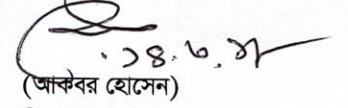 ১৪.৬.১৮
(আকবর হোসেন)